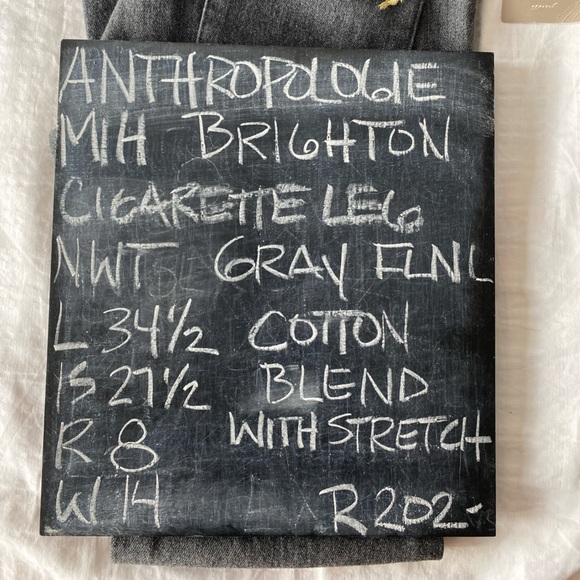 ANTHROPOLOGIE
MIH BRIGHTON
CIGARETTE LEG
NWT GRAY FLNL
L 34 1/2 COTTON
IS 27 1/2 BLEND
R 8 WITH STRETCH
W 14 R 202-